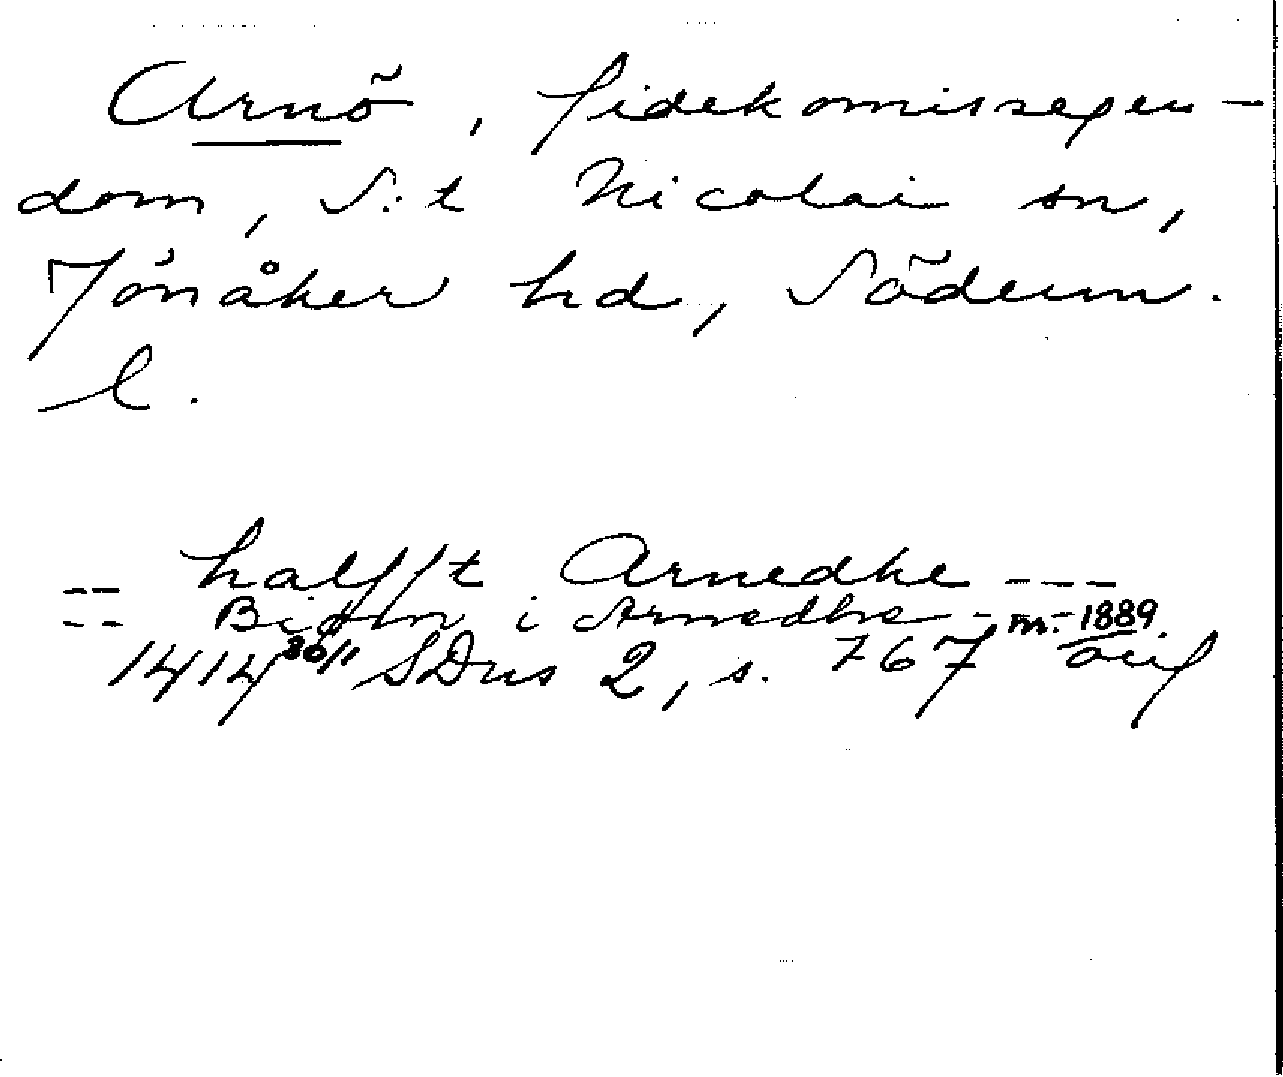 Arnö, fidekomissegen-
dom, S:t Nicolai sn,
Jönåker hd, Söderm.
l.
-- halfft Arnedhe ---
-- Biørn i Arnedhe - nr. 1889.
1414 30/11 SDns 2, s. 767 orig